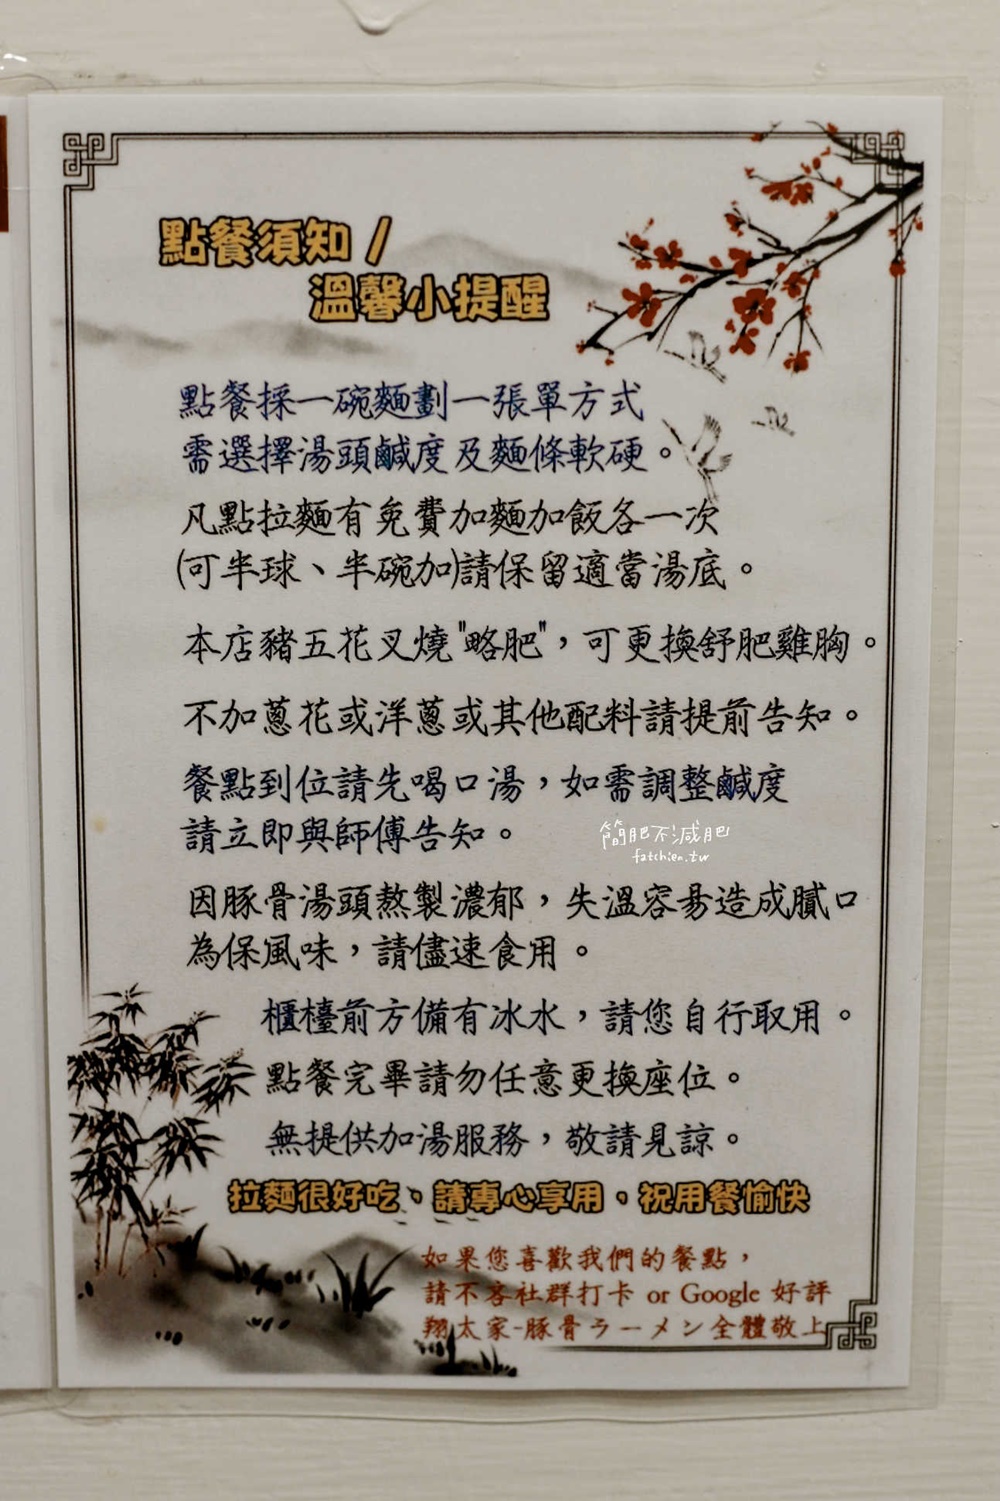 點餐須知 /
溫馨小提醒
點餐採一碗麵劃一張單方式
需選擇湯頭鹹度及麵條軟硬。
凡點拉麵有免費加麵加飯各一次
(可半球、半碗加)請保留適當湯底。
本店豬五花叉燒"略肥"，可更換舒肥雞胸。
不加蔥花或洋蔥或其他配料請提前告知。
餐點到位請先喝口湯，如需調整鹹度
請立即與師傅告知。
簡肥不減肥
fatchien.tw
因豚骨湯頭熬製濃郁，失溫容易造成膩口
為保風味，請儘速食用。
櫃檯前方備有冰水，請您自行取用。
點餐完畢請勿任意更換座位。
無提供加湯服務，敬請見諒。
拉麵很好吃，請專心享用。祝用餐愉快
如果您喜歡我們的餐點，
請不吝社群打卡 or Google 好評
翔太家-豚骨ラーメン全體敬上